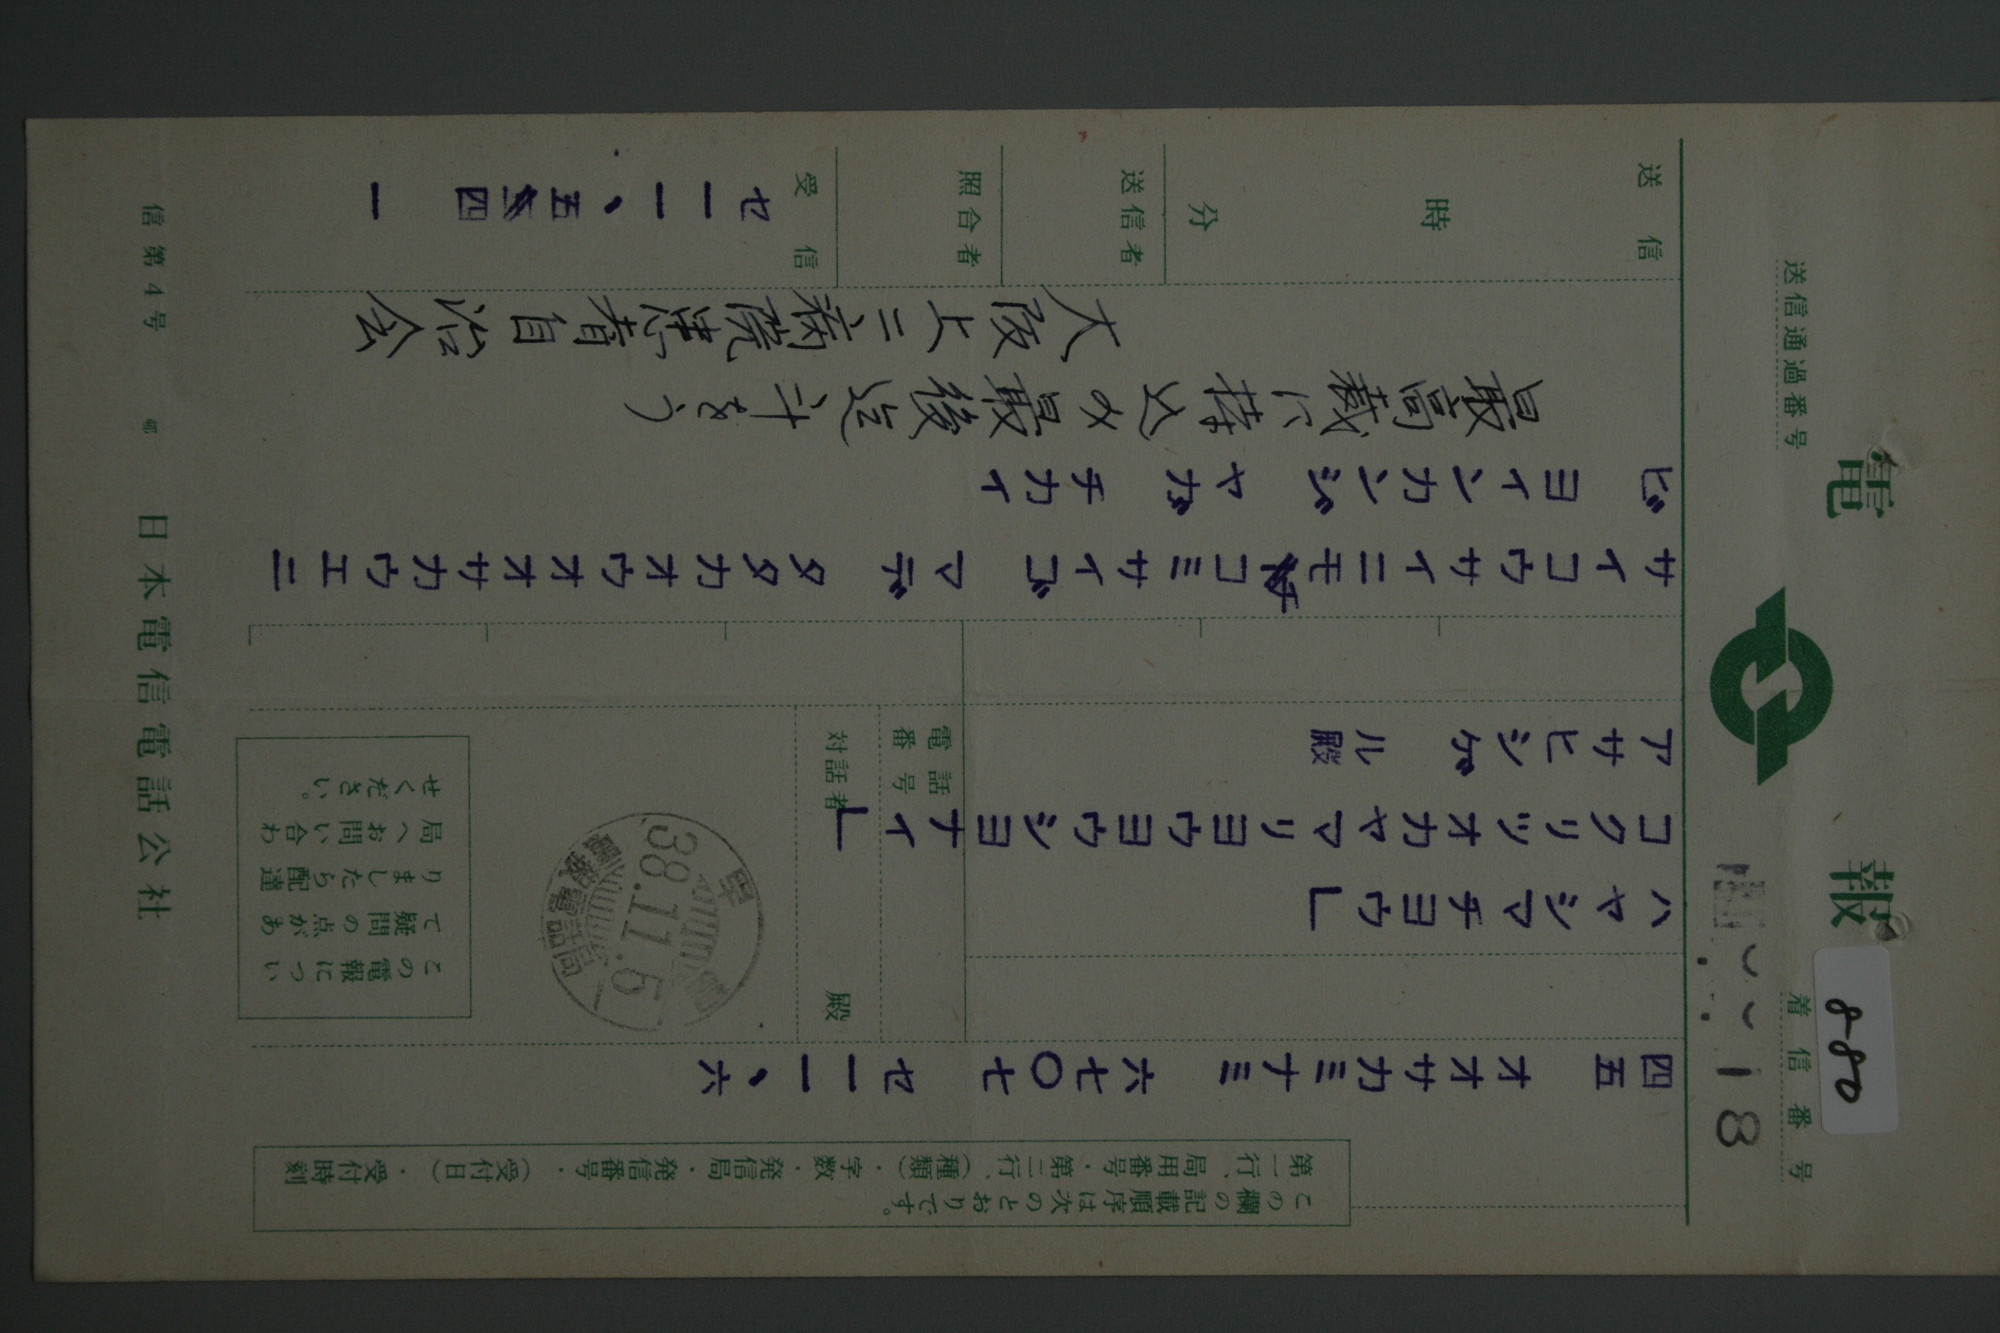 電報
8-80
着信番号
18
送信通過番号
この欄の記載順序は次のとおりです。
第一行、局用番号・第二行、(種類)・字数・発信局・発信番号・(受付日)・受付時刻
四五 オオサカミナミ 六七〇七 セ一一、六
ハヤシマチヨウ」
コクリツオカヤマリヨウヨウシヨナイ」
アサヒシゲル殿
電話番号
対話者 殿
38.11.5
電報電話局
この電報につい
て疑問の点があ
りましたら配達
局へお問い合わ
せください。
サイコウサイニモチコミサイゴ マデ タタカオウオオサカウエニ
ビヨインカンジヤガ チカイ
最高裁に持込み最後迄斗をう
大阪上二病院患者自治会
送信
時
分
送信者
照合者
受信
セ一一、五 四 一
信第4号
日本電信電話公社